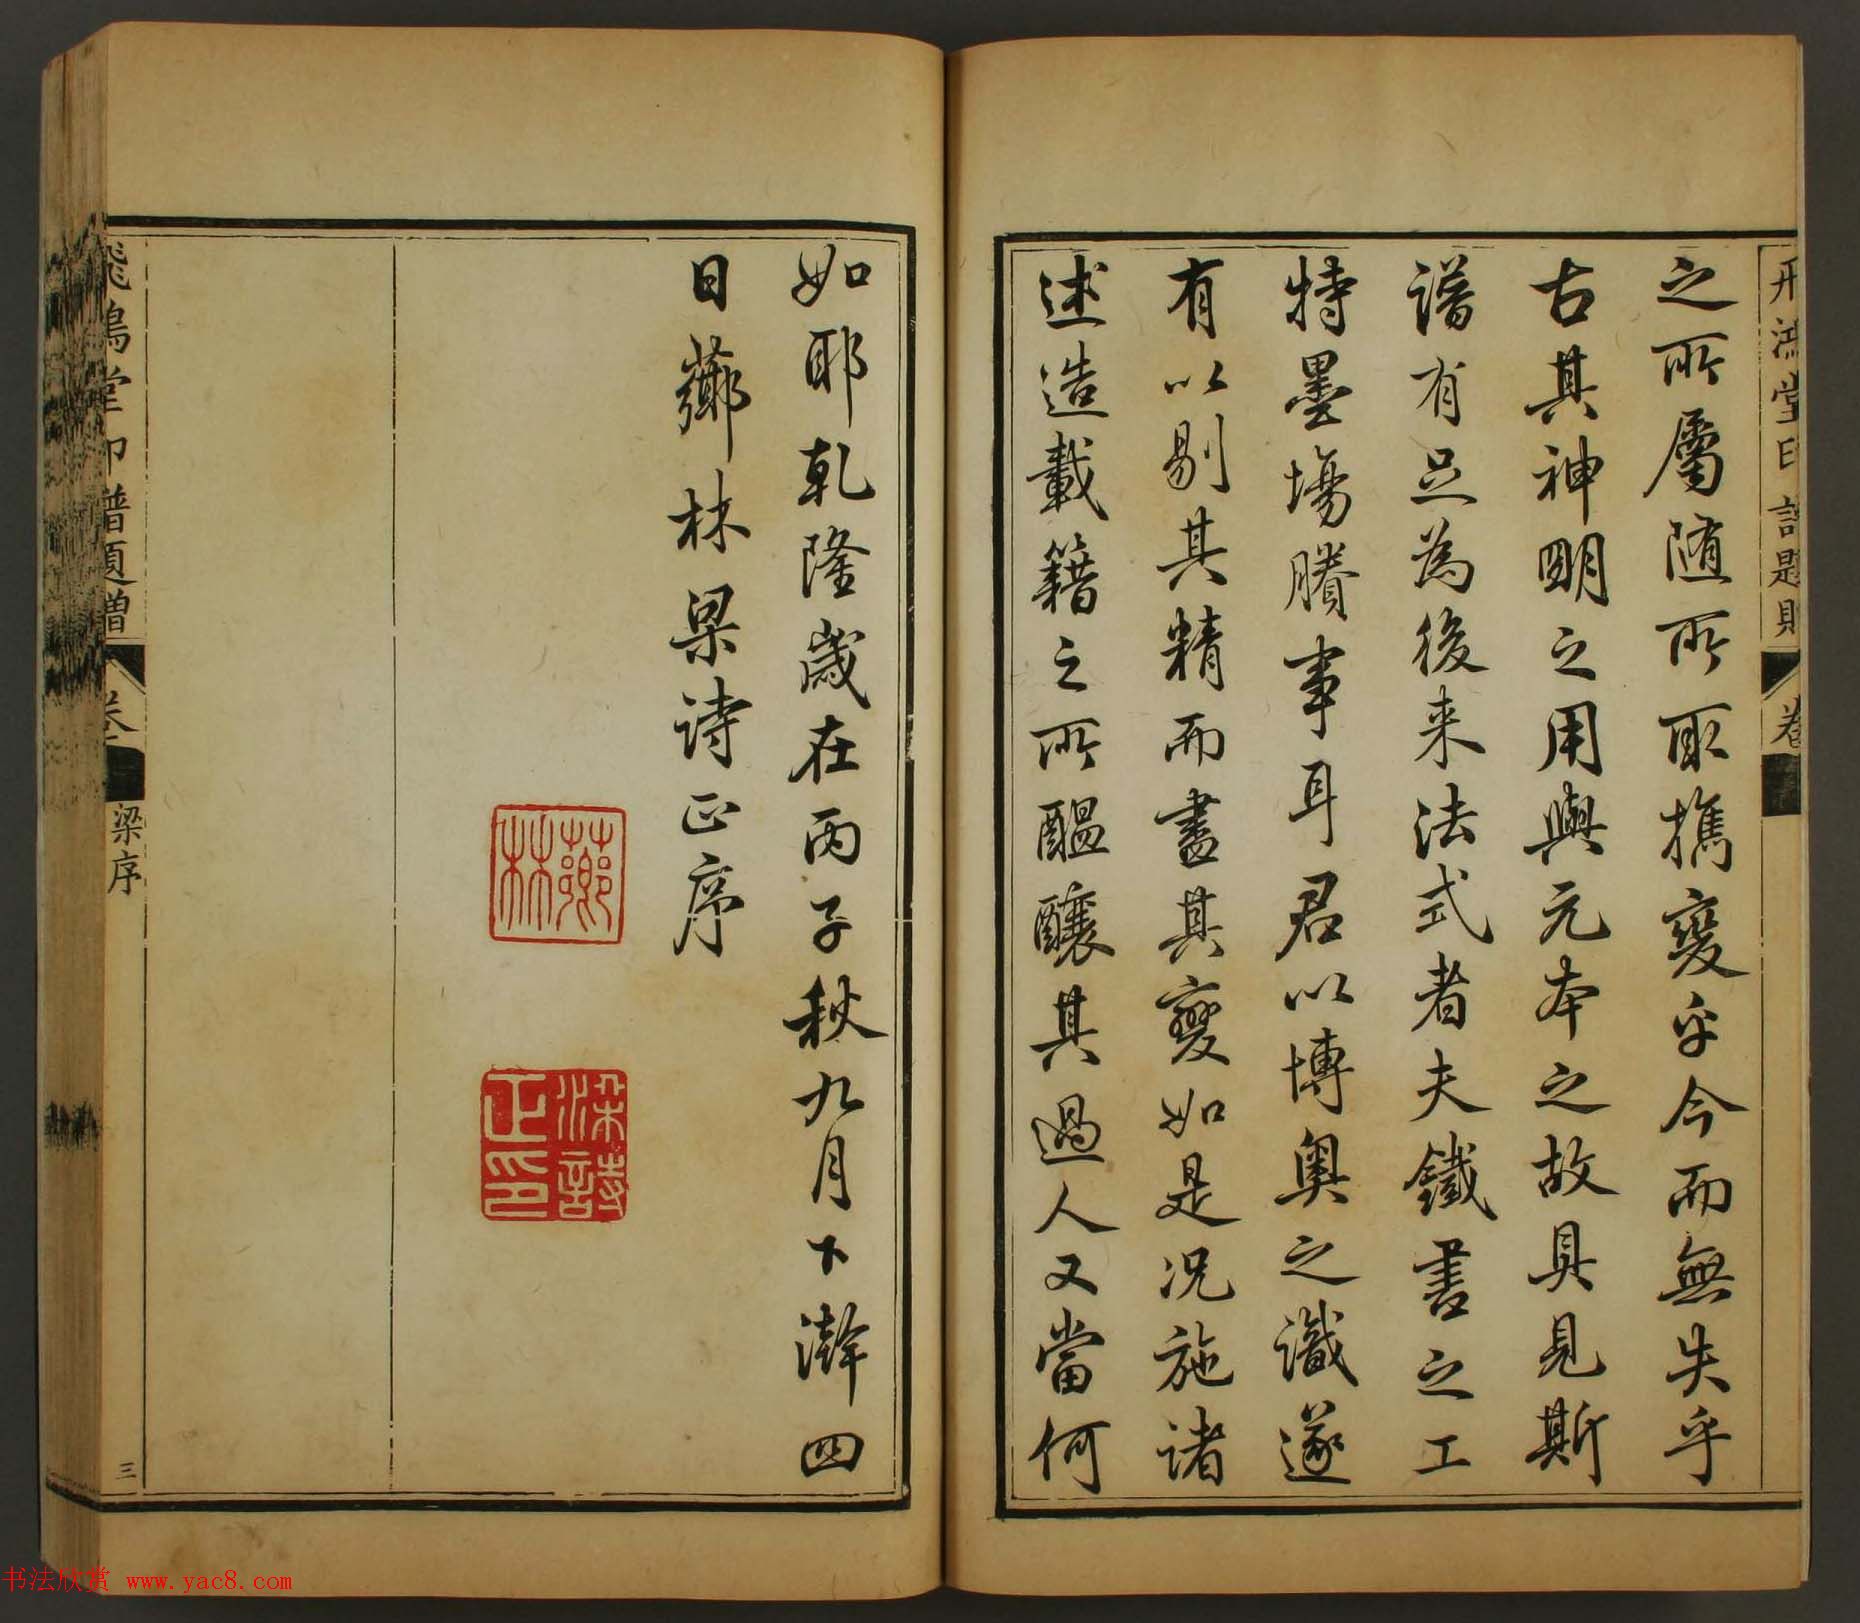 之所屬随所取攜變乎今而無失乎
古其神明之用與元本之故具見斯
譜有足為後来法式者夫鐵書之工
特墨塲賸事耳君以博奥之識遂
有以剔其精而盡其變如是况施诸
述造載籍之所醞釀其過人又當何
如耶乾隆歲在丙子秋九月下澣四
日薌林梁诗正序
薌林
梁詩正印
飛鴻堂印譜題贈
卷
梁序
三
书法欣赏 www.yac8.com